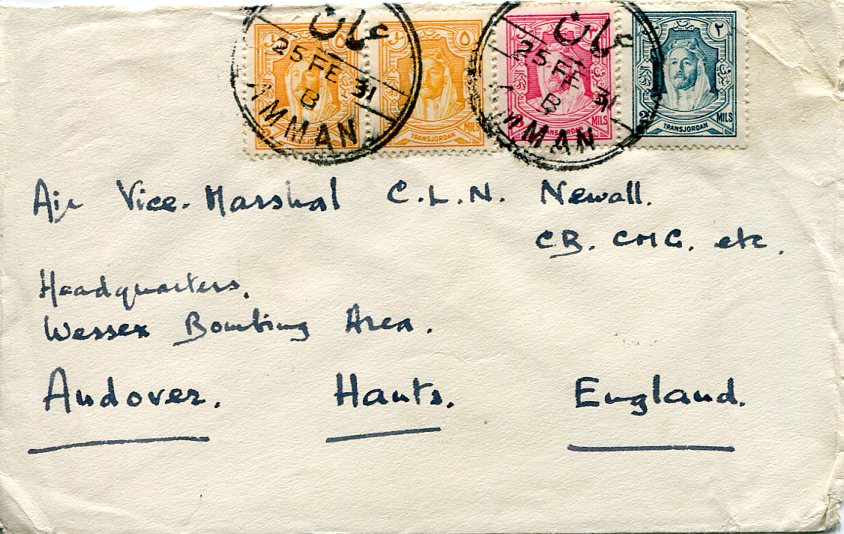 عمان
25 FE 31
B
AMMAN
عمان
25 FE 31
B
AMMAN
٥
TRANSJORDAN
MILS
TRANSJORDAN
٢
2
MILS
TRANSJORDAN
Air Vice-Marshal C.L.N. Newall.
CB. CMG. etc.
Headquarters,
Wessex Bombing Area.
Andover. Hants. England.